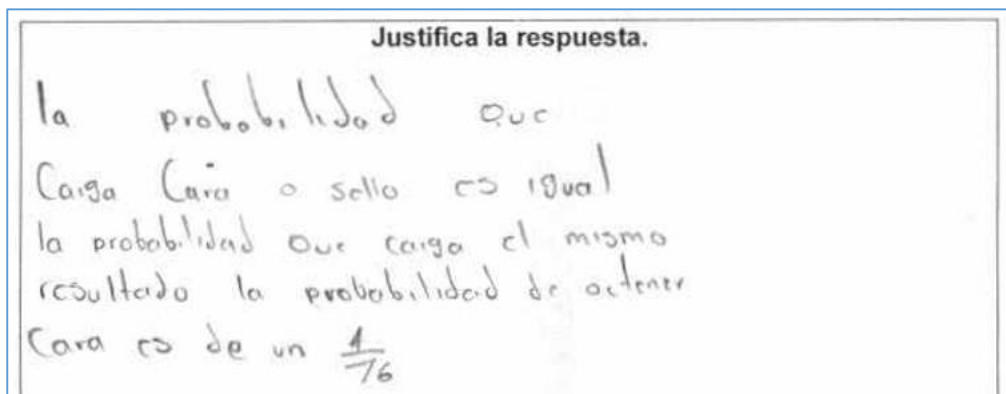 Justifica la respuesta.
la probabilidad que
Caiga Cara o sello es igual
la probabilidad que caiga el mismo
resultado la probabilidad de octener
Cara es de un 1/16